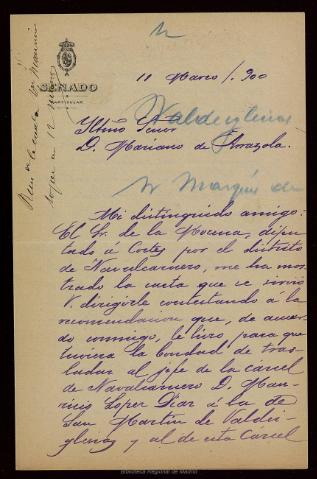 SENADO
PARTICULAR
10 Marzo/900
Valdeiglesias
Iltmo Señor
D. Mariano de Arrazola.
Sr Marqués de
Mi distinguido amigo:
El Sr. de la Mocuna, dipu-
tado á Cortes por el distrito
de Navalcarnero, me ha mos-
trado la carta que se sirvió
V. dirigirle contestando á la
recomendacion que, de acuer-
do conmigo, le hizo para que
tuviera la bondad de tras-
ladar al jefe de la carcel
de Navalcarnero D. Mau-
ricio Lopez Diaz á la de
San Martin de Valdei-
glesias y al de esta Carcel
Biblioteca Regional de Madrid